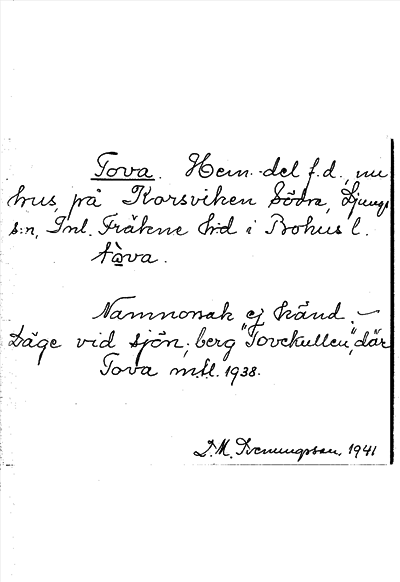 Tova. Hem.-del f.d., nu
hus, på Korsviken Södra, Ljungs
s:n, Inl. Fräkne hd i Bohus l.
tòva.
Namnorsak ej känd. –
Läge vid sjön; berg "Tovekullen", där
Tova mfl. 1938.
D. M. Svenungsson, 1941